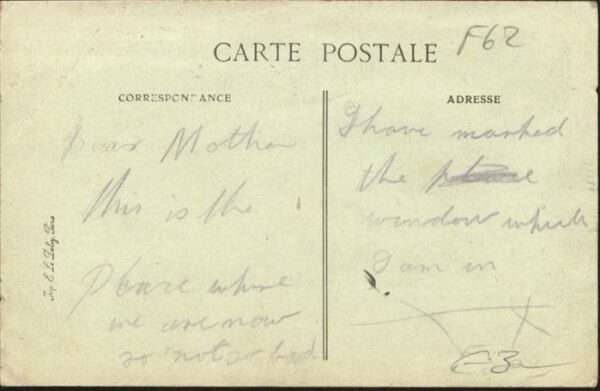 F62
CARTE POSTALE
CORRESPONDANCE
Dear Mother
this is the
Place where
we are now
so not so bad
ADRESSE
I have marked
the place
window which
I am in
£3
Imp. E. Le Deley, Paris